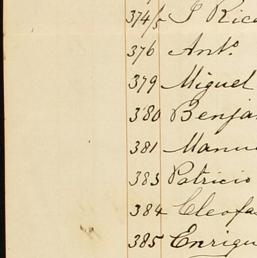 374/5 J Rica
376 Anto.
379 Miguel
380 Benja
381 Manu
383 Patricio
384 Cleofa
385 Enriqu